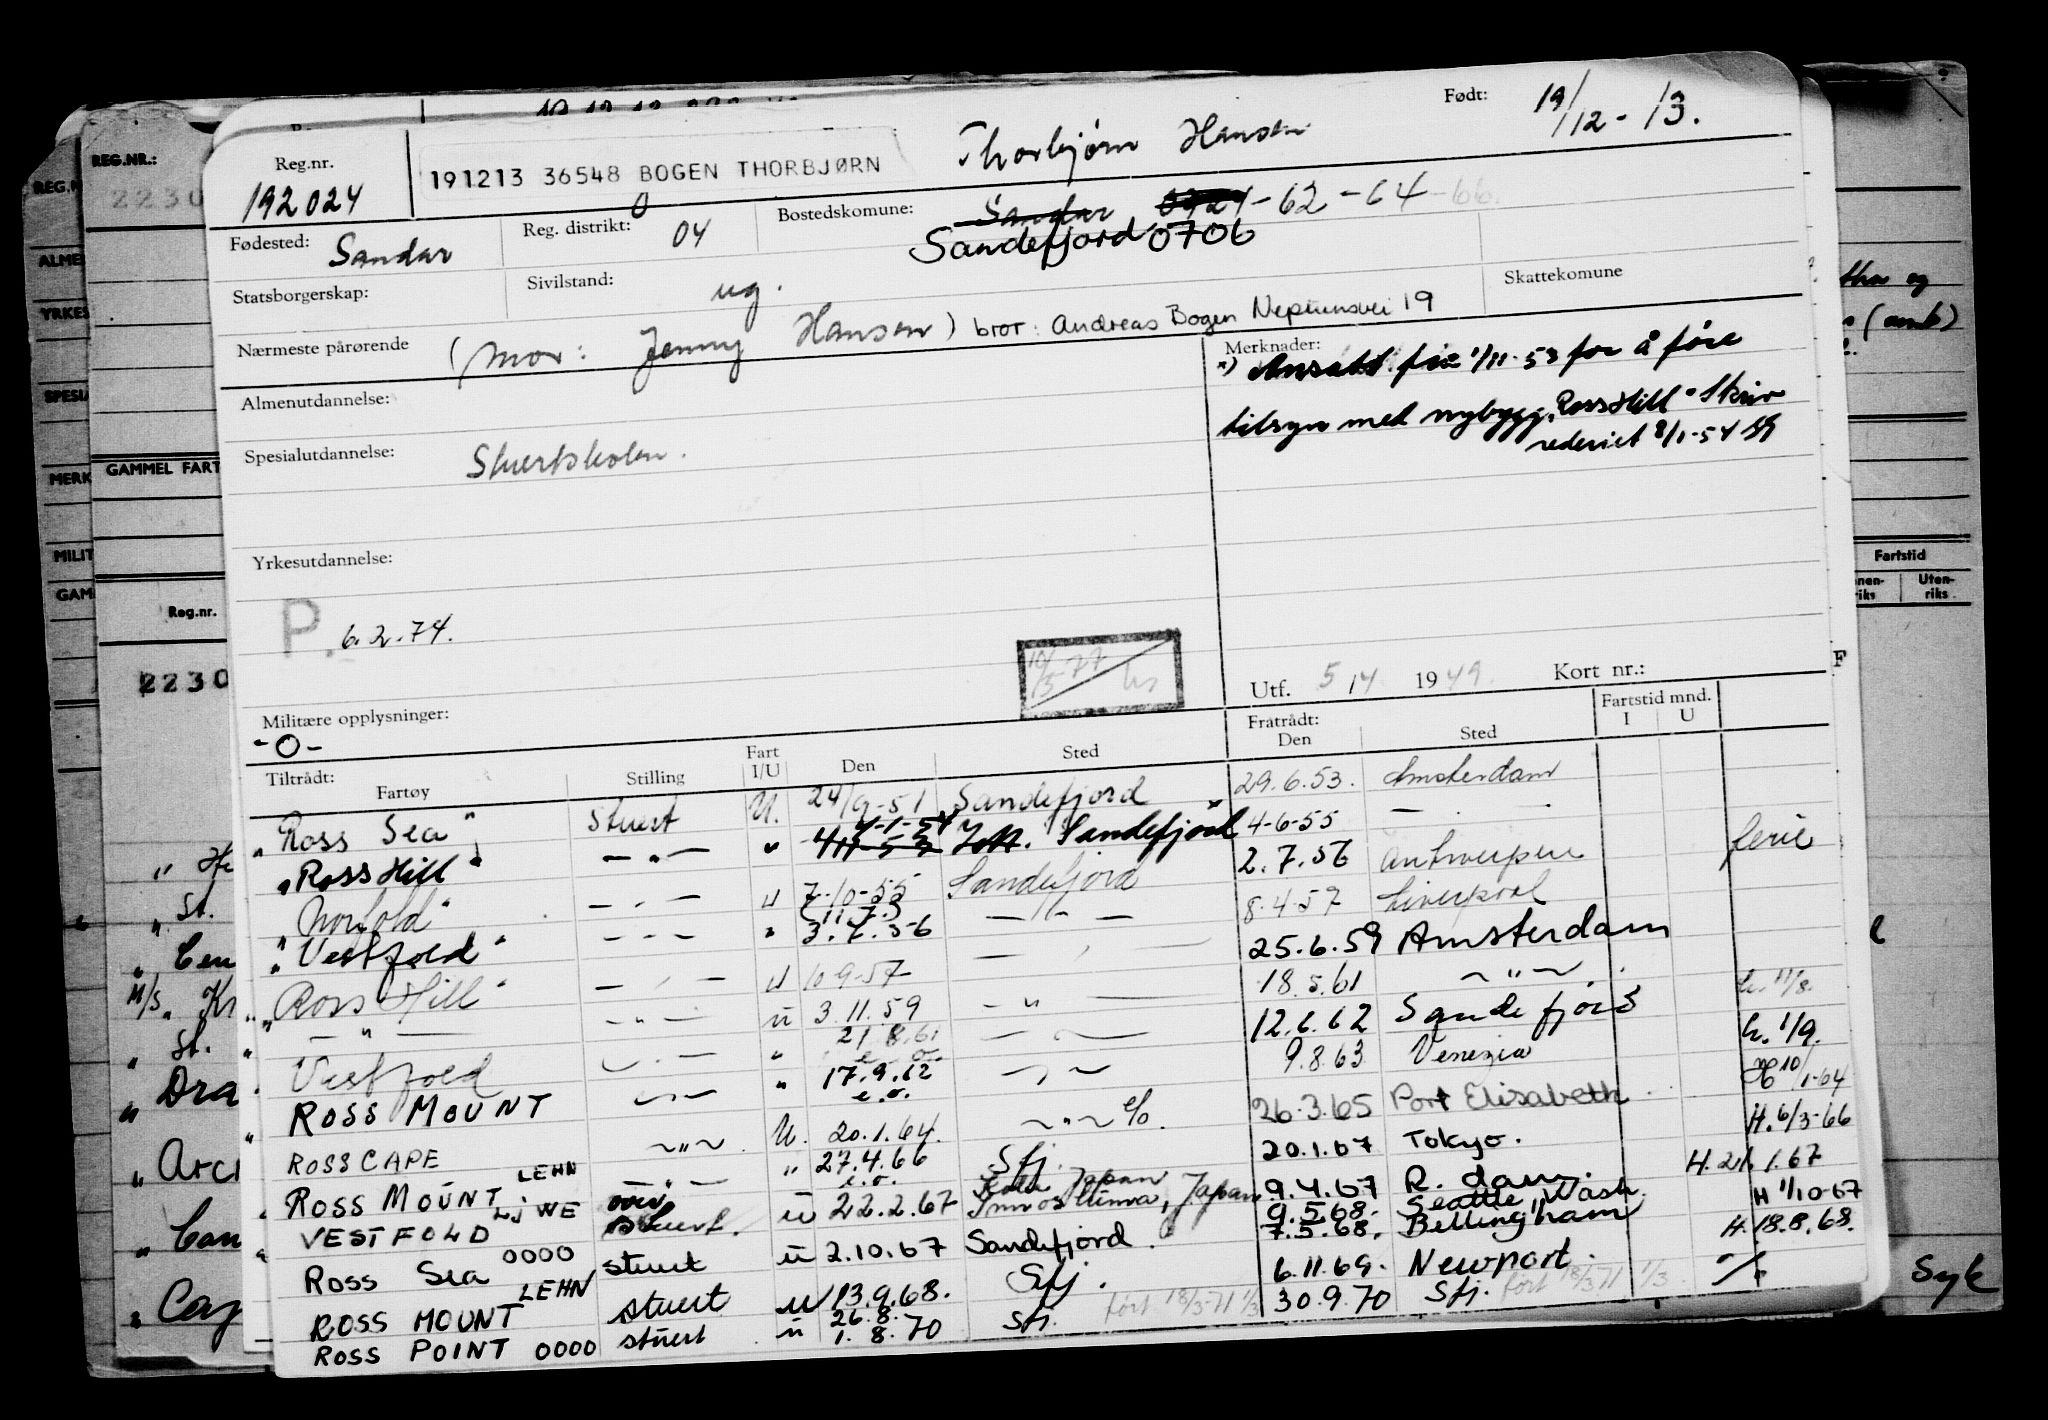 Reg.nr.
192024
191213 36548 BOGEN THORBJØRN
Thorbjørn Hansen
Født:
19/12-13.
Fødested:
Sandar
Reg. distrikt:
04
Bostedskomune:
Sandar -62-64-66.
Sandefjord 0706
Statsborgerskap:
Sivilstand:
ug.
Skattekomune
Nærmeste pårørende
(mor: Jenny Hansen) bror: Andreas Bogen Neptunsvei 19
Almenutdannelse:
Merknader:
x) Ansatt fra 1/11-53 for å føre
tilsyn med nybygg. "Ross Hill" Skriv
rederiet 8/1-54
Spesialutdannelse:
Stuertskolen.
Yrkesutdannelse:
P. 6.2.74.
Utf. 5/4 1949.
Kort nr.:
Militære opplysninger:
-0-
Tiltrådt:
Fartøy
Stilling
Fart
I/U
Den
Sted
Fratrådt:
Den
Sted
Fartstid mnd.
I
U
"Ross Sea" Stuert U. 24/9-51 Sandefjord 29.6.53. Amsterdam
"Ross Hill" — " — " 4-1-54 Sandefjord 4-6-55 —
"Norfold" — " — u 7-10-55 Sandefjord 2.7.56 Antwerpen ferie
"Vestfold" — " — " 3.7.56 — " — 8.4.57 Liverpool
"Ross Hill" — " — u 10-9-57 25.6.59 Amsterdam
" — " — — " — u 3.11.59 — " — 18.5.61 — " —
Vestfold — " — " 21.8.61 e.o. 12.6.62 Sandefjord
ROSS MOUNT — " — " 17.9.62 e.o. — " — 9.8.63 Venezia h. 1/9.
ROSS CAPE — " — U. 20.1.64. — " — 26.3.65 Port Elisabeth H 10/1-64
ROSS MOUNT LEHN — " — " 27.4.66 e.o. Sfj. 20.1.67 Tokyo. H. 6/3-66
VESTFOLD LJWE stuert. u 22.2.67 Japan 9.4.67 R.dam. H. 26.1.67
ROSS SEA 0000 stuert u 2.10.67 Sandefjord. 9.5.68. Seattle, Wash. H 1/10-67
7.5.68. Bellingham
ROSS MOUNT LEHN stuert u 13.9.68. Sfj. 6.11.69. Newport. H. 18.8.68.
26.8.
ROSS POINT 0000 stuert u 1.8.70 Sfj. ført 18/3-71 1/3 30.9.70 Sfj. ført 18/3 71 1/3
REG.NR.:
2230
GAMMEL FART
Reg.nr.
2230
M/S
St.
Fartstid
Uten-
riks
Syk